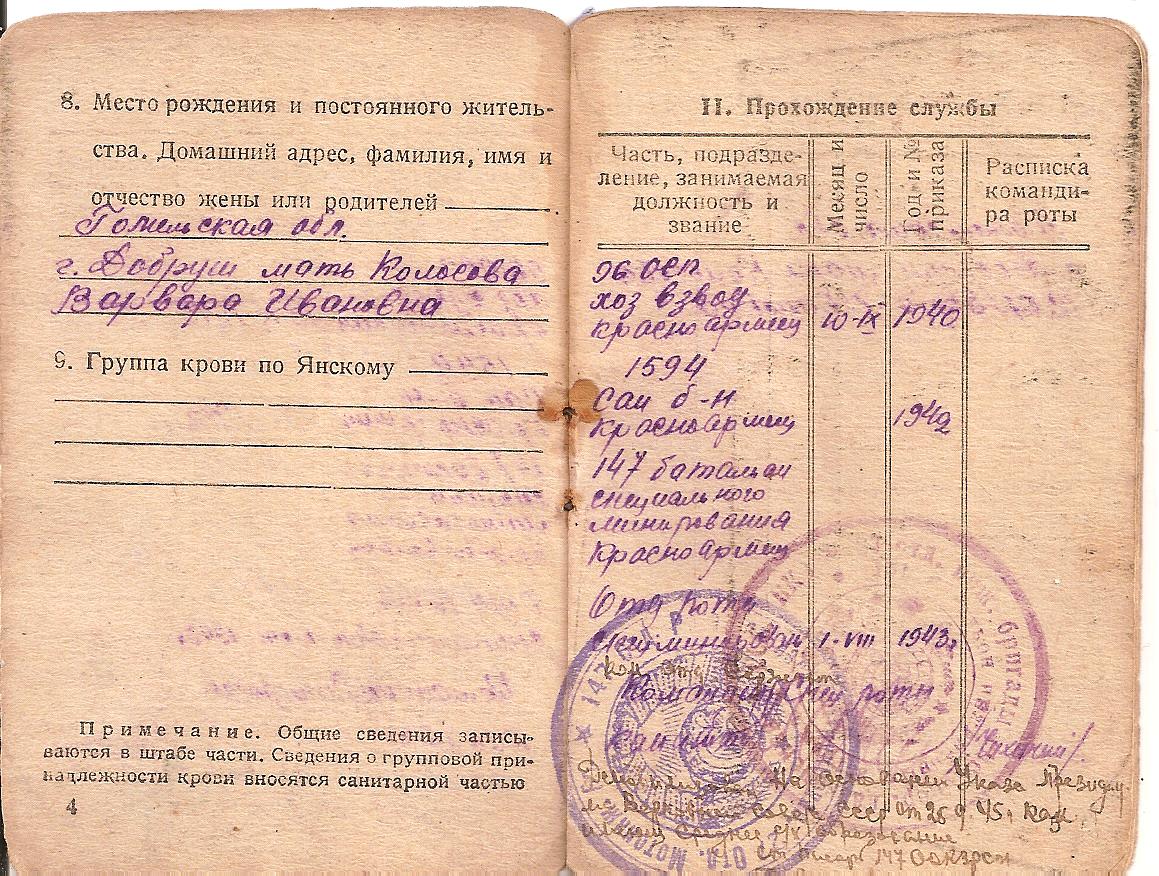 8. Место рождения и постоянного житель-
ства. Домашний адрес, фамилия, имя и
отчество жены или родителей
Гомельская обл.
г. Добруш мать Колосова
Варвара Ивановна
9. Группа крови по Янскому
Примечание. Общие сведения записы-
ваются в штабе части. Сведения о групповой при-
надлежности крови вносятся санитарной частью
4
II. Прохождение службы
Часть, подразде-
ление, занимаемая
должность и
звание
Месяц и
число
Год и №
приказа
Расписка
команди-
ра роты
96 осп
хоз взвод
красноармеец 10-IX 1940
1594
сап б-н
красноармеец 1942
147 баталион
специального
минирования
Красноармеец
Отд рота
спецминирован 1-VIII 1943г
ком отд сержант
Командир спец роты
капитан
Демобилизован на основании Указа Президиу-
ма Верховн Совета СССР от 25 9 45г как
имеющ среднее с/х образование